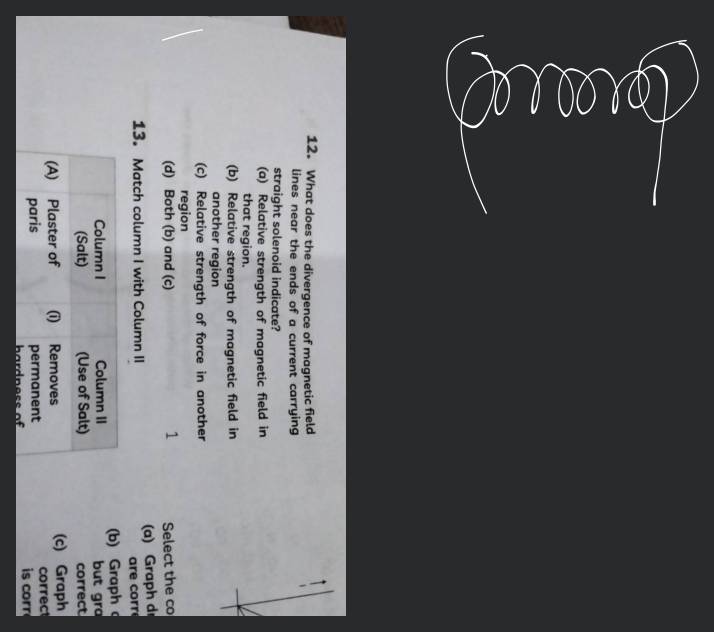 12. What does the divergence of magnetic field
lines near the ends of a current carrying
straight solenoid indicate?
(a) Relative strength of magnetic field in
that region.
(b) Relative strength of magnetic field in
another region
(c) Relative strength of force in another
region
(d) Both (b) and (c) 1
13. Match column I with Column II
Column I Column II
(Salt) (Use of Salt)
(A) Plaster of (i) Removes
paris permanent
hardness of
Select the co
(a) Graph d
are corr
(b) Graph
but gra
correct
(c) Graph
correct
is corr